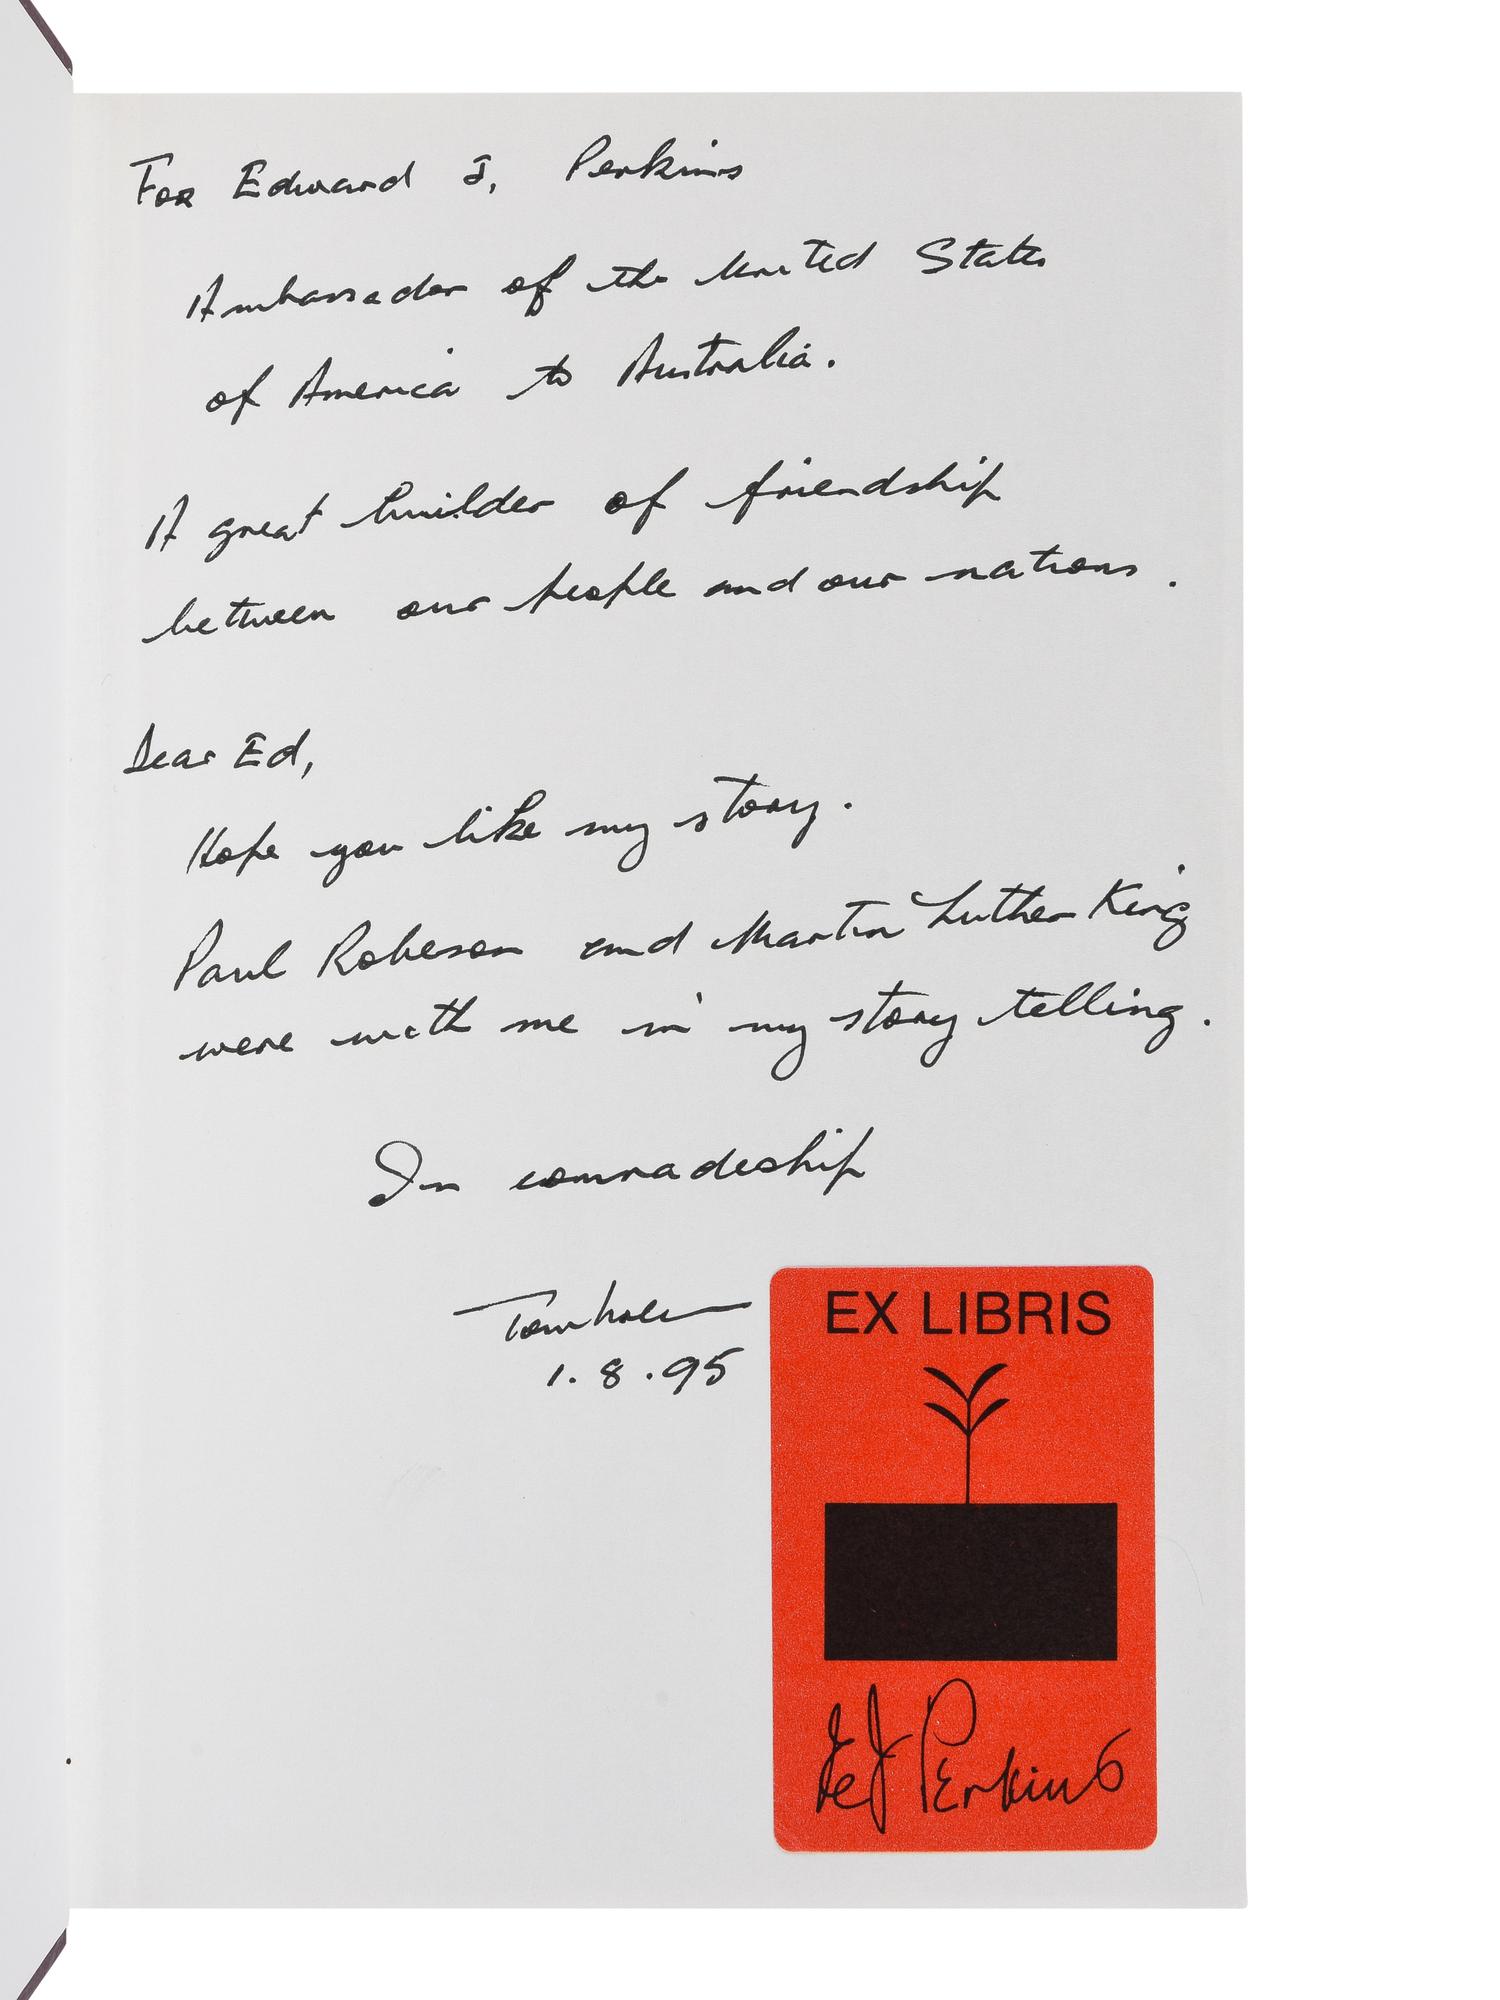 For Edward J. Perkins
Ambassador of the United States
of America to Australia.
A great builder of friendship
between our people and our nations.
Dear Ed,
Hope you like my story.
Paul Robeson and Martin Luther King
were with me in my story telling.
In comradeship
1.8.95
EX LIBRIS
EJ Perkins